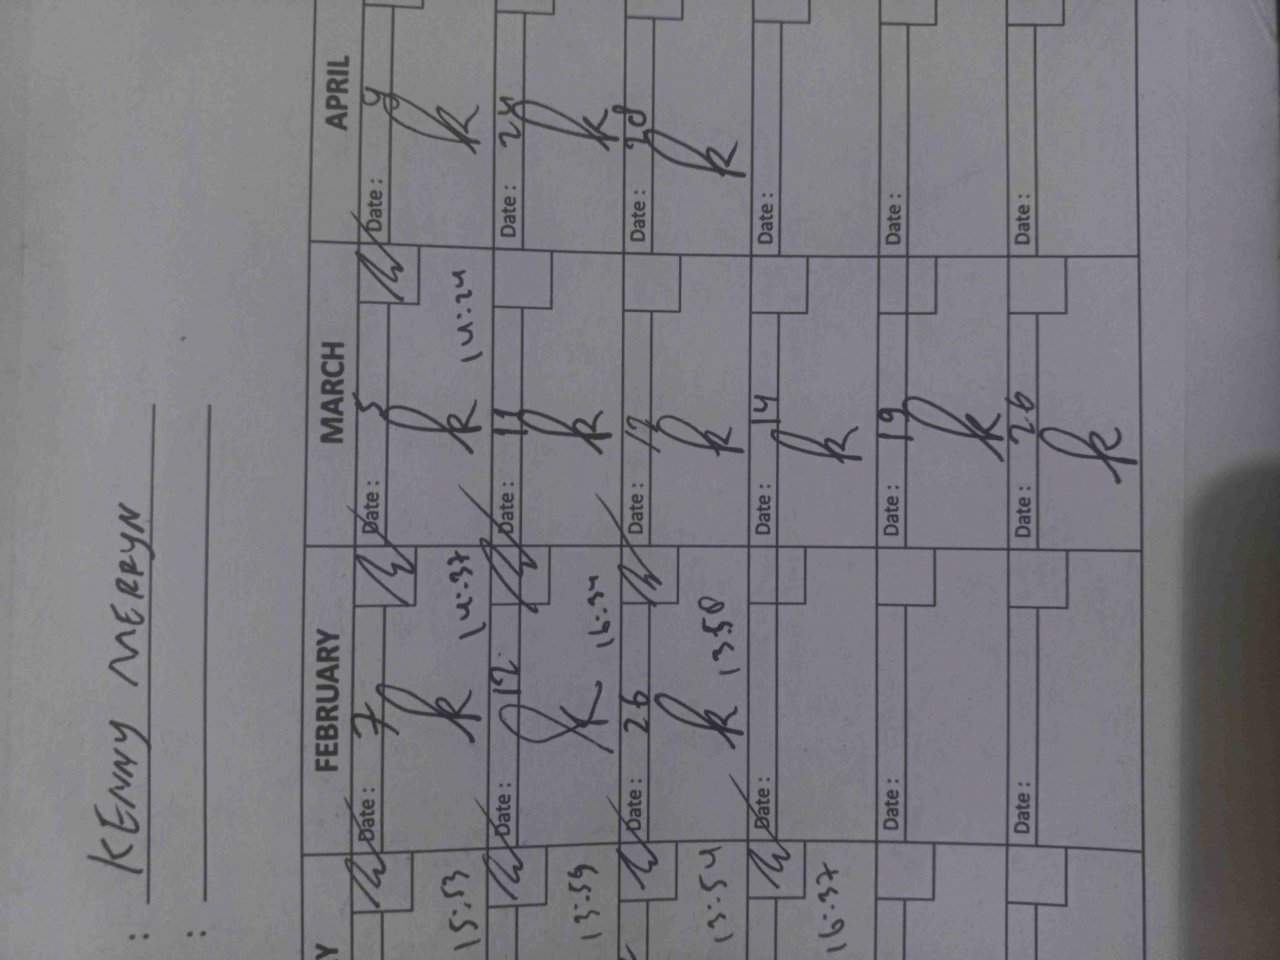 : KENNY MERRYN
:
Y FEBRUARY MARCH APRIL
Date: 7 Date: 5 Date: 9
15:53 14:37 14:24
Date: 12 Date: 11 Date: 24
13:59 16:34
Date: 26 Date: 12 Date: 28
13:54 13:58
Date: Date: 14 Date:
16:37
Date: Date: 19 Date:
Date: Date: 26 Date: